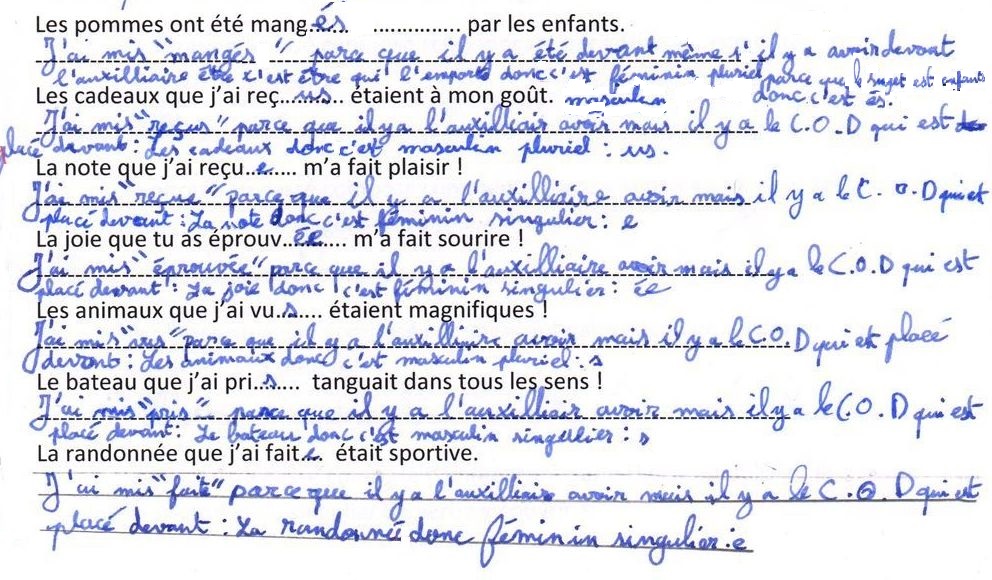 Les pommes ont été mang.és ............... par les enfants.
J'ai mis "mangés" parce que il y a été devant même s'il y a avoir devant
l'auxilliaire être c'est être qui l'emporte donc c'est féminin pluriel parce que le sujet est enfants
Les cadeaux que j'ai reç...us... étaient à mon goût. masculin donc c'est és.
J'ai mis "reçus" parce que il y a l'auxilliair avoir mais il y a le C.O.D qui est
placé devant : Les cadeaux donc c'est masculin pluriel : us.
La note que j'ai reçu..e..... m'a fait plaisir !
J'ai mis "reçue" parce que il y a l'auxilliaire avoir mais il y a le C.O.D qui est
placé devant : La note donc c'est féminin singulier : e
La joie que tu as éprouv..ée.... m'a fait sourire !
J'ai mis "éprouvée" parce que il y a l'auxilliaire avoir mais il y a le C.O.D qui est
placé devant : La joie donc c'est féminin singulier : ée
Les animaux que j'ai vu..s.... étaient magnifiques !
J'ai mis "vus" parce que il y a l'auxilliaire avoir mais il y a le C.O.D qui est placé
devant : Les animaux donc c'est masculin pluriel : s
Le bateau que j'ai pri..s.... tanguait dans tous les sens !
J'ai mis "pris" parce que il y a l'auxilliair avoir mais il y a le C.O.D qui est
placé devant : Le bateau donc c'est masculin singullier : s
La randonnée que j'ai fait..e. était sportive.
J'ai mis "faite" parce que il y a l'auxilliair avoir mais il y a le C.O.D qui est
placé devant : La randonné donc féminin singulier : e